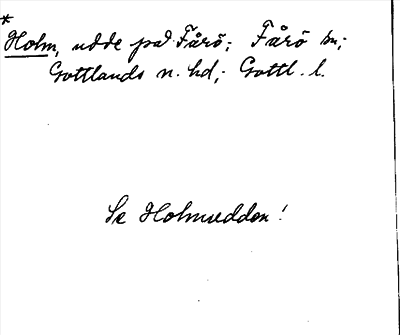 *
Holm, udde på Fårö; Fårö sn;
Gottlands n. hd; Gottl. l.
Se Holmudden!